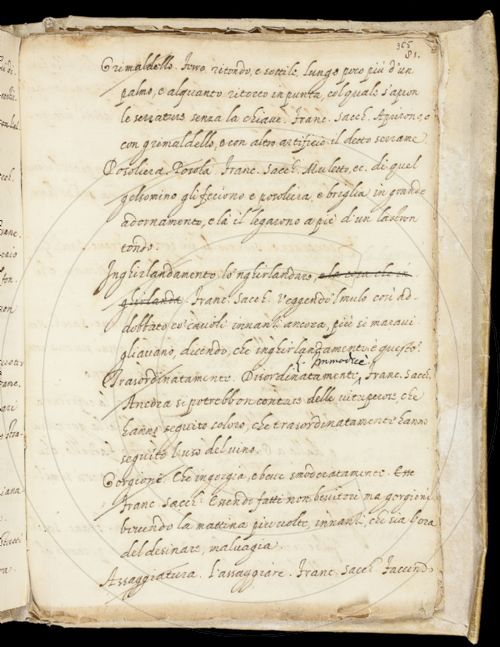 365
81.
Grimaldello. Ferro ritondo, e sottile, lungo poco più d'un
palmo, e alquanto ritorto in punta, col quale s'apron
le serrature senza la chiave. Franc. Sacch. Apriron, o
con grimaldello, o con altro artificio il detto serrame
Posoliera. Posola. Franc. Sacch. Muletto, ec. di quel
gelsomino gli feciono e posoliera, e briglia in grande
adornamento, e là il legarono a piè d'un lastron
tondo.
Inghirlandamento. lo 'nghirlandare, e la cosa che in
ghirlanda. Franc. Sacch. Veggendo 'l mulo così ad-
dobbato co' cavoli innanzi ancora, più si maravi
gliavano, dicendo, che inghirlandamento è questo?
L. Immodice
Trasordinatamente. Disordinatamente, Franc. Sacch.
Ancora si potrebbon contare delle vituperose, che
hanno seguito coloro, che trasordinatamente hanno
seguito l'uso del vino.
Gorgione. Che ingorgia, e beve smoderatamente.
Franc. Sacch. Essendo fatti non bevitori ma gorgioni
bevendo la mattina più volte, innanzi, che sia l'ora
del desinare, malvagia.
Assaggiatura. l'assaggiare. Franc. Sacch. Facendo